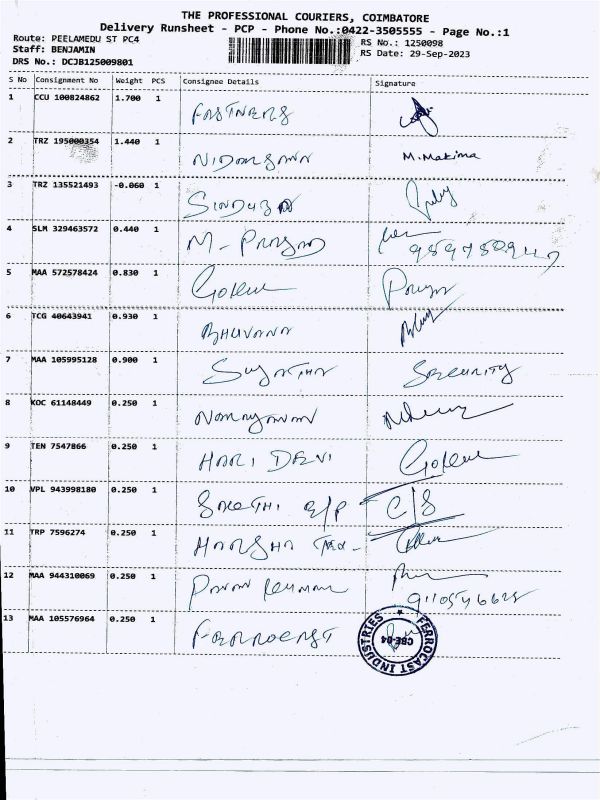 THE PROFESSIONAL COURIERS, COIMBATORE
Delivery Runsheet - PCP - Phone No.:0422-3505555 - Page No.:1
Route: PEELAMEDU ST PC4
RS No.: 1250098
Staff: BENJAMIN
RS Date: 29-Sep-2023
DRS No.: DCJB125009801
S No Consignment No Weight PCS Consignee Details Signature
1 CCU 100824862 1.700 1 FASTNERS
2 TRZ 195000354 1.440 1 M.Makima
3 TRZ 135521493 -0.060 1
4 SLM 329463572 0.440 1
5 MAA 572578424 0.830 1 Gokul
6 TCG 40643941 0.930 1 BHUVANA
7 MAA 105995128 0.900 1 SUJATHA SECURITY
8 KOC 61148449 0.250 1 NARAYANAN
9 TEN 7547866 0.250 1 HARI DEVI
10 VPL 943998180 0.250 1 SAKTHI E/P C/S
11 TRP 7596274 0.250 1 HARSHA
12 MAA 944310069 0.250 1
13 MAA 105576964 0.250 1 FERROCAST
FERROCAST INDUSTRIES
CBE-04